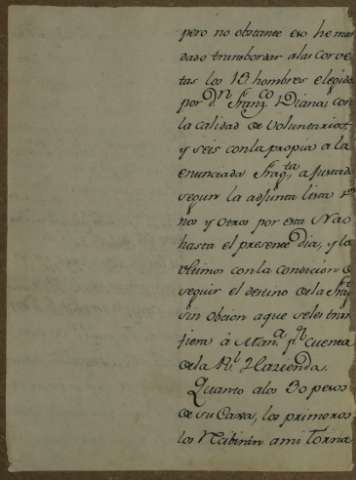 pero no obstante eso he man
dado transbordar a las Corve
tas los 18 hombres elegidos
por Dn. Franco. Viana, con
la calidad de Voluntarios,
y seis con la propia a la
enunciada Fragta. ajustad
segun la adjunta lista
nos y otros por esta Nao
hasta el presente dia, y lo
ultimos con la condicion de
seguir el destino de la Frag
sin obcion a que se les tran
fiera á Mana. pr. cuenta
de la Rl. Hacienda.
Quanto a los 30 pesos
de su Casa, los primeros
los a mi Torna